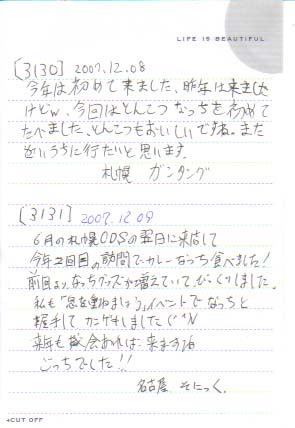 LIFE IS BEAUTIFUL
[3130] 2007.12.08
今年は初めて来ました、昨年は来ました
けどw、今回はとんこつなっちを初めて
たべました、とんこつもおいしいですね。また
近いうちに行たいと思います。
札幌 ガンタング
[3131] 2007.12.09
6月の札幌ODSの翌日に来店して
今年二回目の訪問でカレーなっち食べました!
前回よりなっちグッズが増えていてびっくりしました。
私も「恋を重ねましょう」イベントでなっちと
握手してカンゲキしました(^^)v
来年も機会あれば来ますね
ごっちでした!!
名古屋 そにっく。
CUT OFF